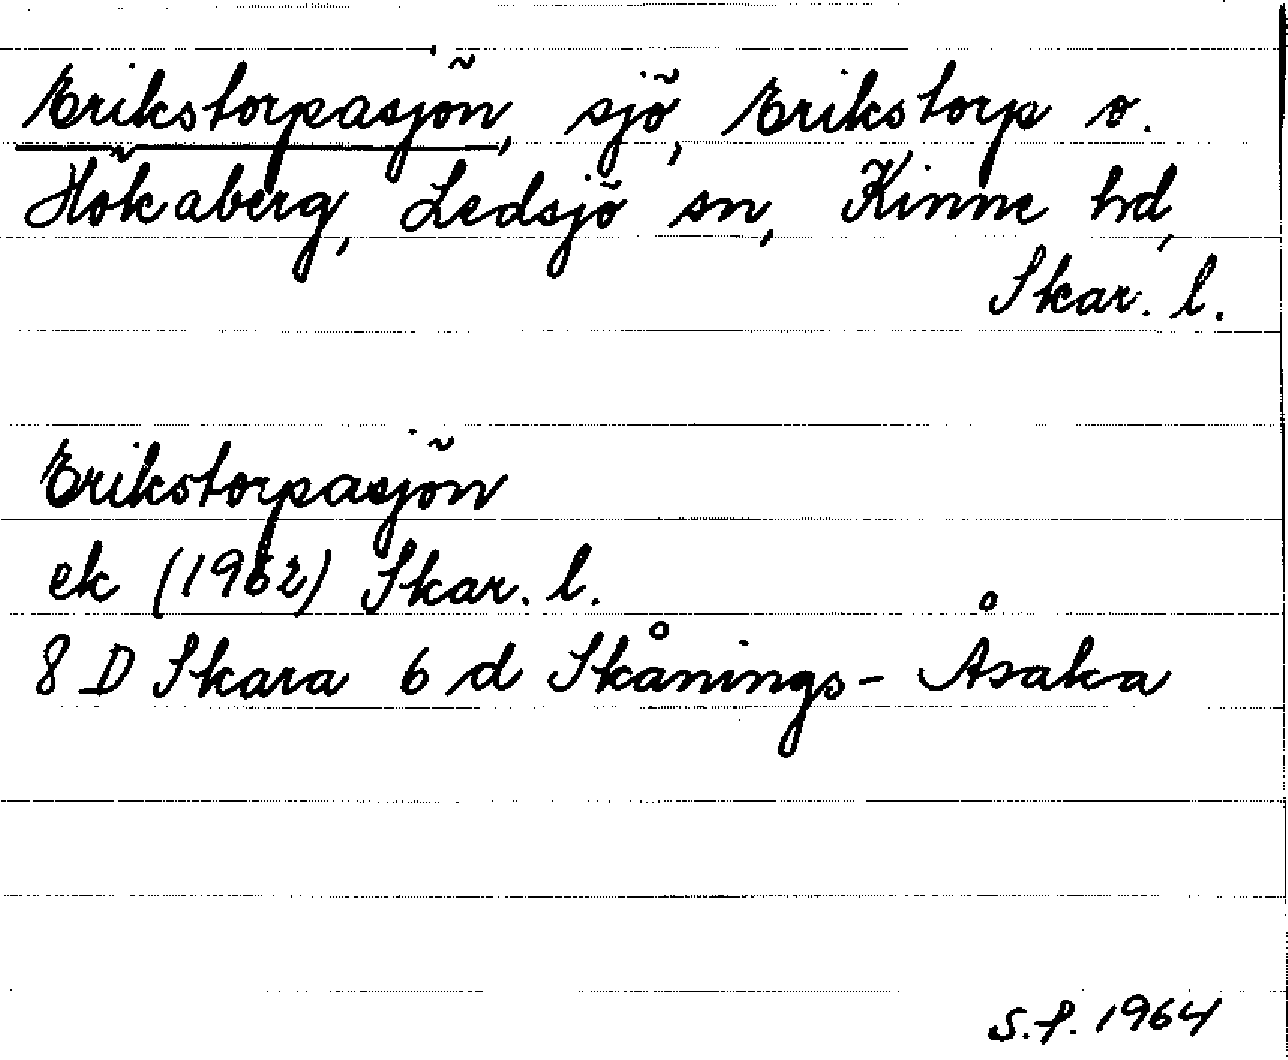 Erikstorpasjön, sjö, Erikstorp o.
Hökaberg, Ledsjö sn, Kinne hd,
Skar. l.
Erikstorpasjön
ek (1962) Skar. l.
8 D Skara 6 d Skånings-Åsaka
S.f. 1964